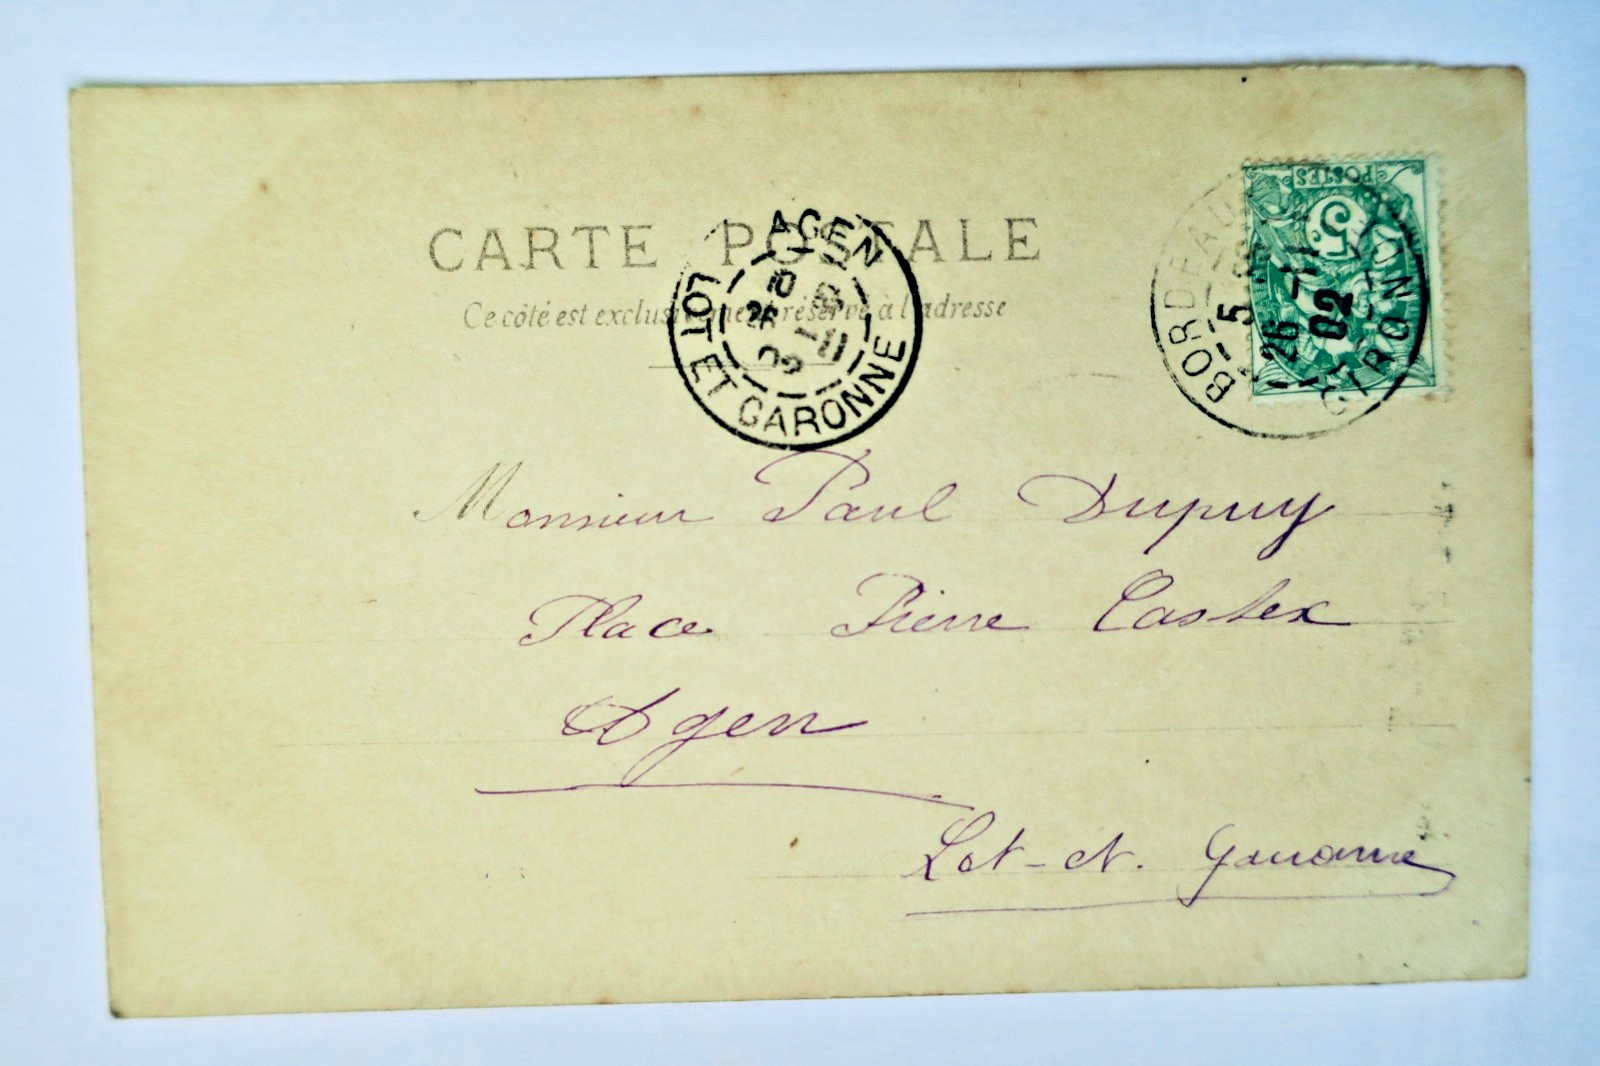 CARTE POSTALE
Ce côté est exclusivement réservé à l'adresse
AGEN
LOT ET GARONNE
BORDEAUX
GIRONDE
5
26 -11
02
POSTES
5
Monsieur Paul Dupuy
Place Pierre Castex
Agen
Lot-et-Garonne